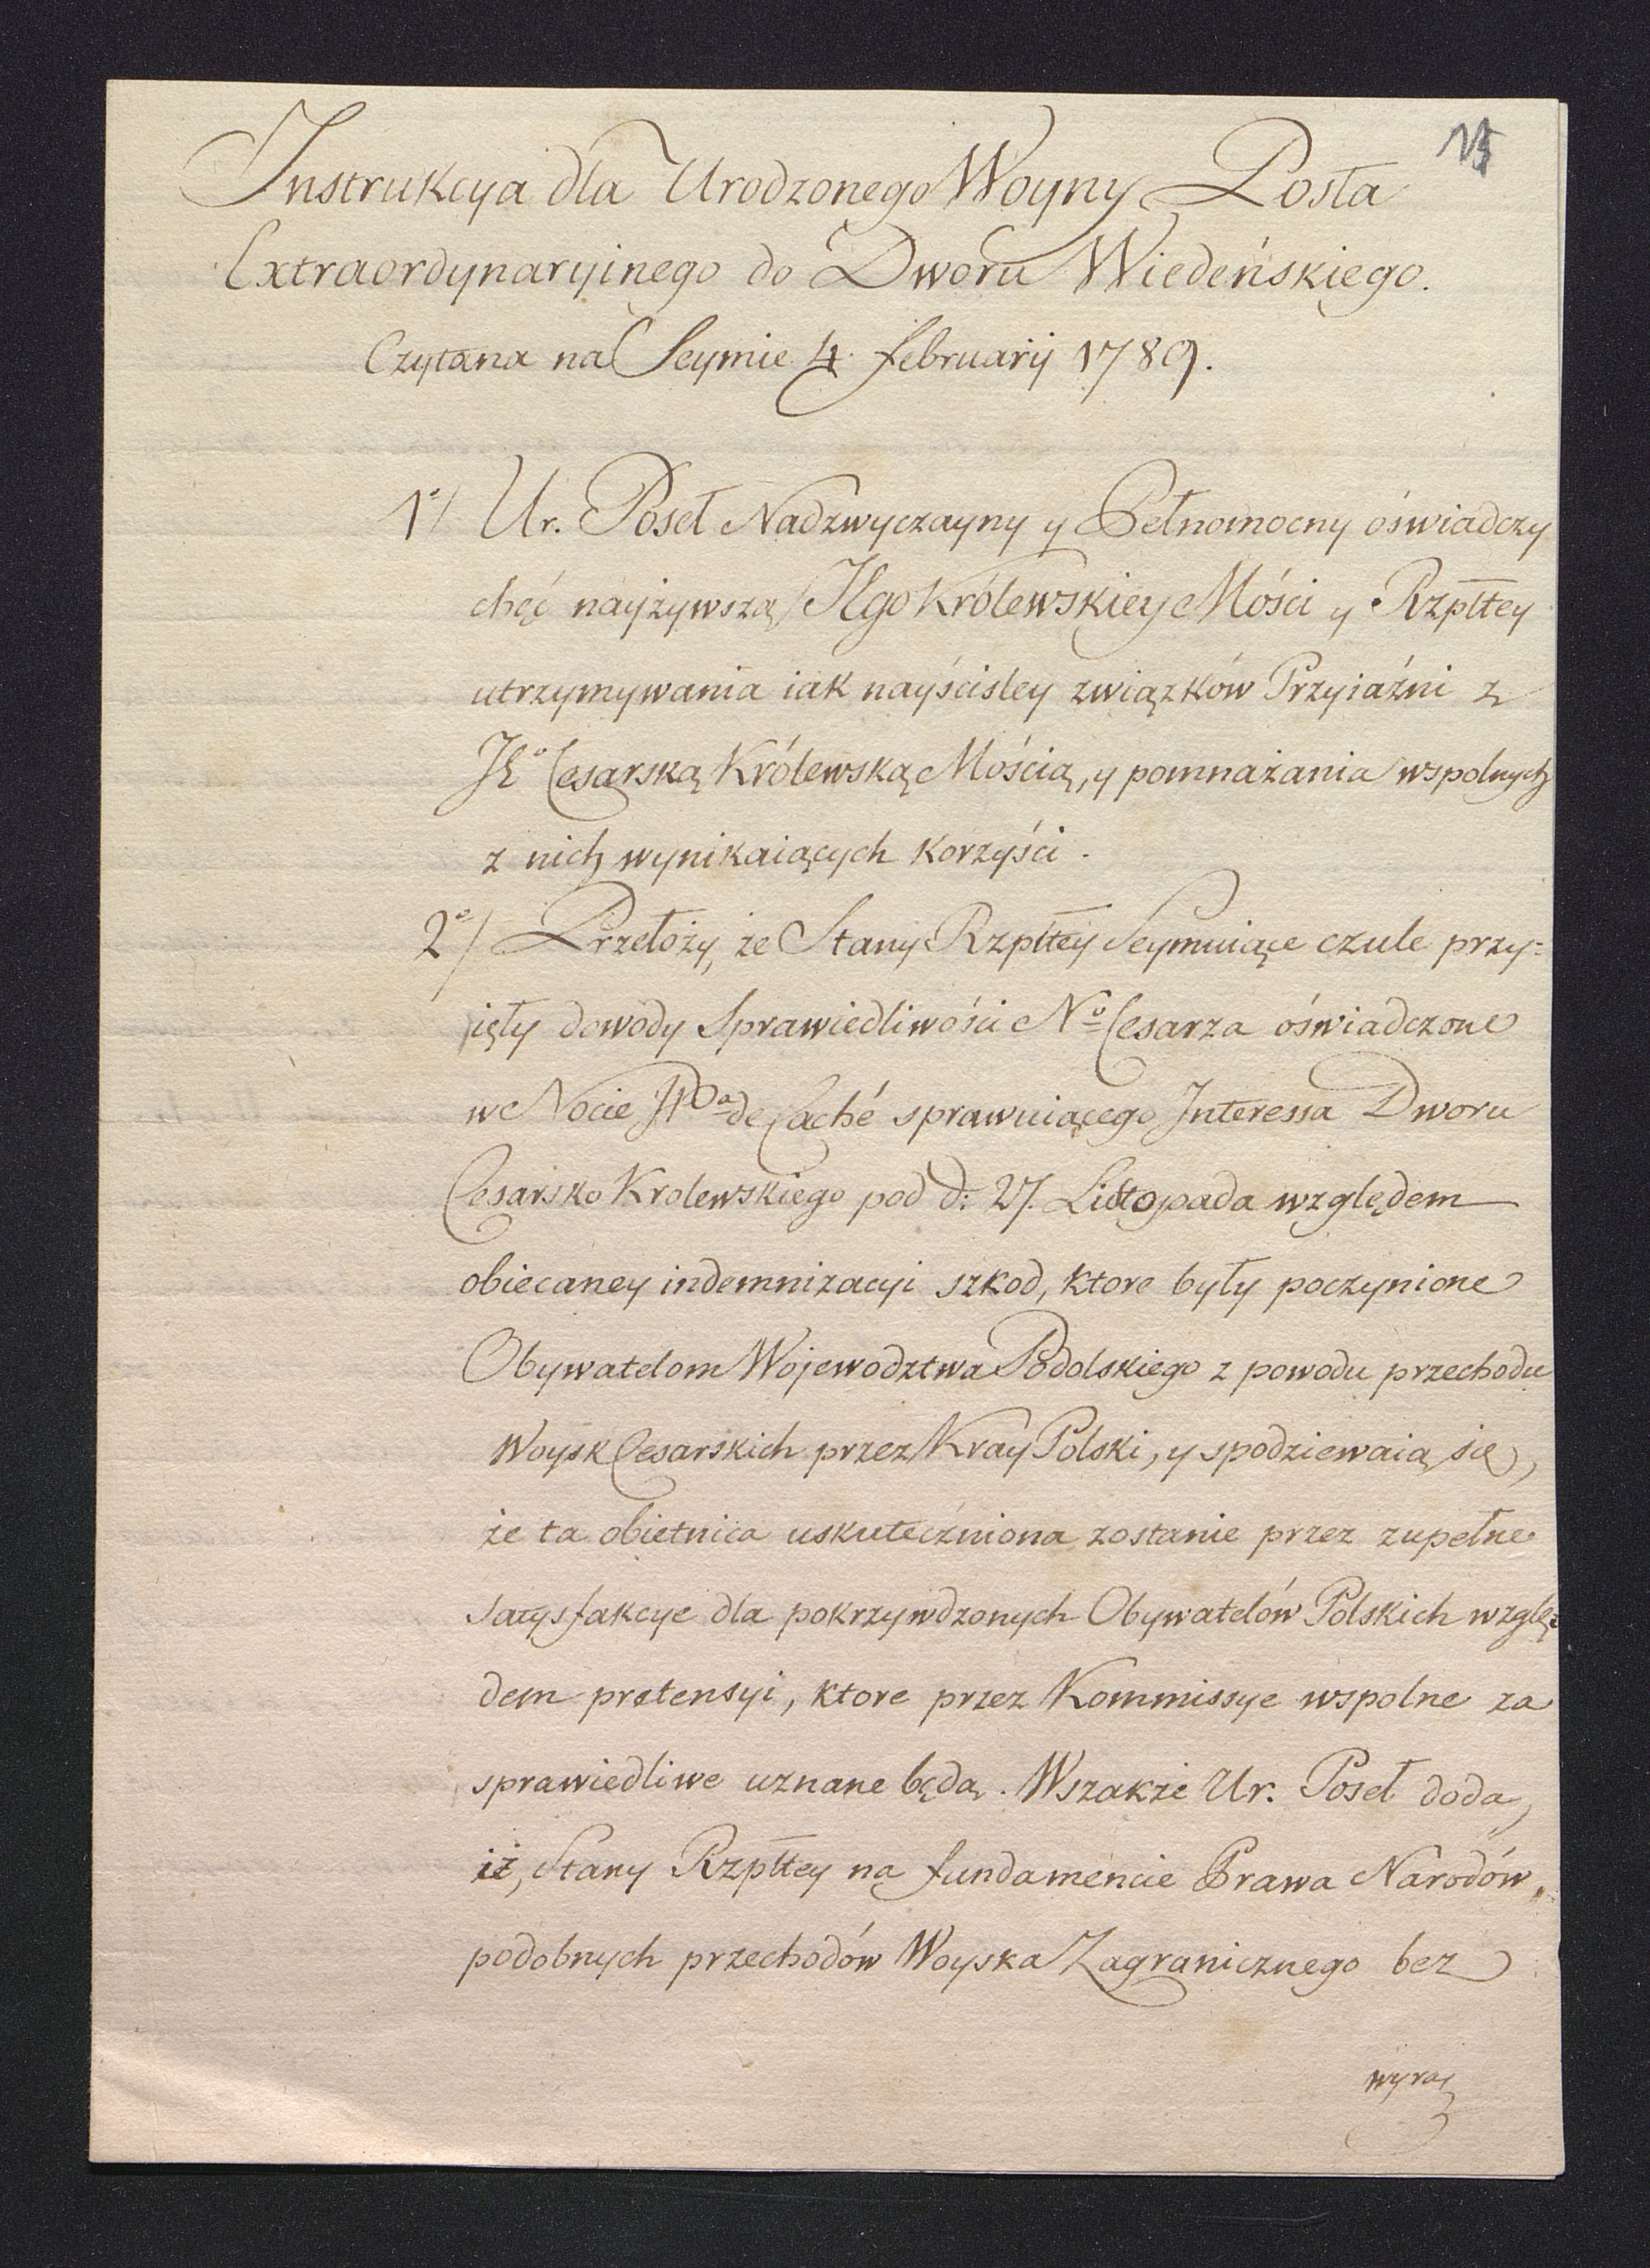 Instrukcya dla Urodzonego Woyny Posła
Extraordynaryinego do Dworu Wiedeńskiego.
Czytana na Seymie 4 februarij 1789.
1º/ Ur. Poseł Nadzwyczayny y Pełnomocny oświadczy
chęć nayżywszą JKgo Królewskiey Mości y Rzpltey
utrzymywania iak nayściśley związków Przyiaźni z
Jº Cesarską Królewską Mością, y pomnażania wspolnych
z nich wynikaiących korzyści.
2º/ Przełoży, że Stany Rzpltey Seymuiące czule przy=
ięły dowody Sprawiedliwości Nº Cesarza oświadczone
w Nocie JPª de Caché sprawuiącego Interessa Dworu
Cesarsko Krolewskiego pod d: 27. Listopada względem
obiecaney indemnizacyi szkod, ktore były poczynione
Obywatelom Wojewodztwa Podolskiego z powodu przechodu
Woysk Cesarskich przez Kray Polski, y spodziewaią się,
że ta obietnica uskuteczniona zostanie przez zupełne
satysfakcye dla pokrzywdzonych Obywatelów Polskich wzglę=
dem pretensyi, ktore przez Kommissye wspolne za
sprawiedliwe uznane będą. Wszakże Ur. Poseł doda,
iż, Stany Rzpltey na fundamencie Prawa Narodów,
podobnych przechodów Woyska Zagranicznego bez
wyraź